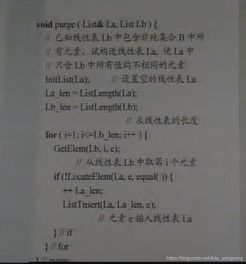 void purge ( List& La, List Lb ) {
// 已知线性表 Lb 中包含非纯集合 B 中所
// 有元素，试构造线性表 La，使 La 中
// 只含 Lb 中所有值均不相同的元素
InitList(La); // 设置空的线性表 La
La_len = ListLength(La);
Lb_len = ListLength(Lb);
// 求线性表的长度
for ( i=1; i<=Lb_len; i++ ) {
GetElem(Lb, i, e);
// 从线性表 Lb 中取第 i 个元素
if (!LocateElem(La, e, equal( )) {
++ La_len;
ListTnsert(La, La_len, e);
// 元素 e 插入线性表 La
} // if
} // for
} // purge